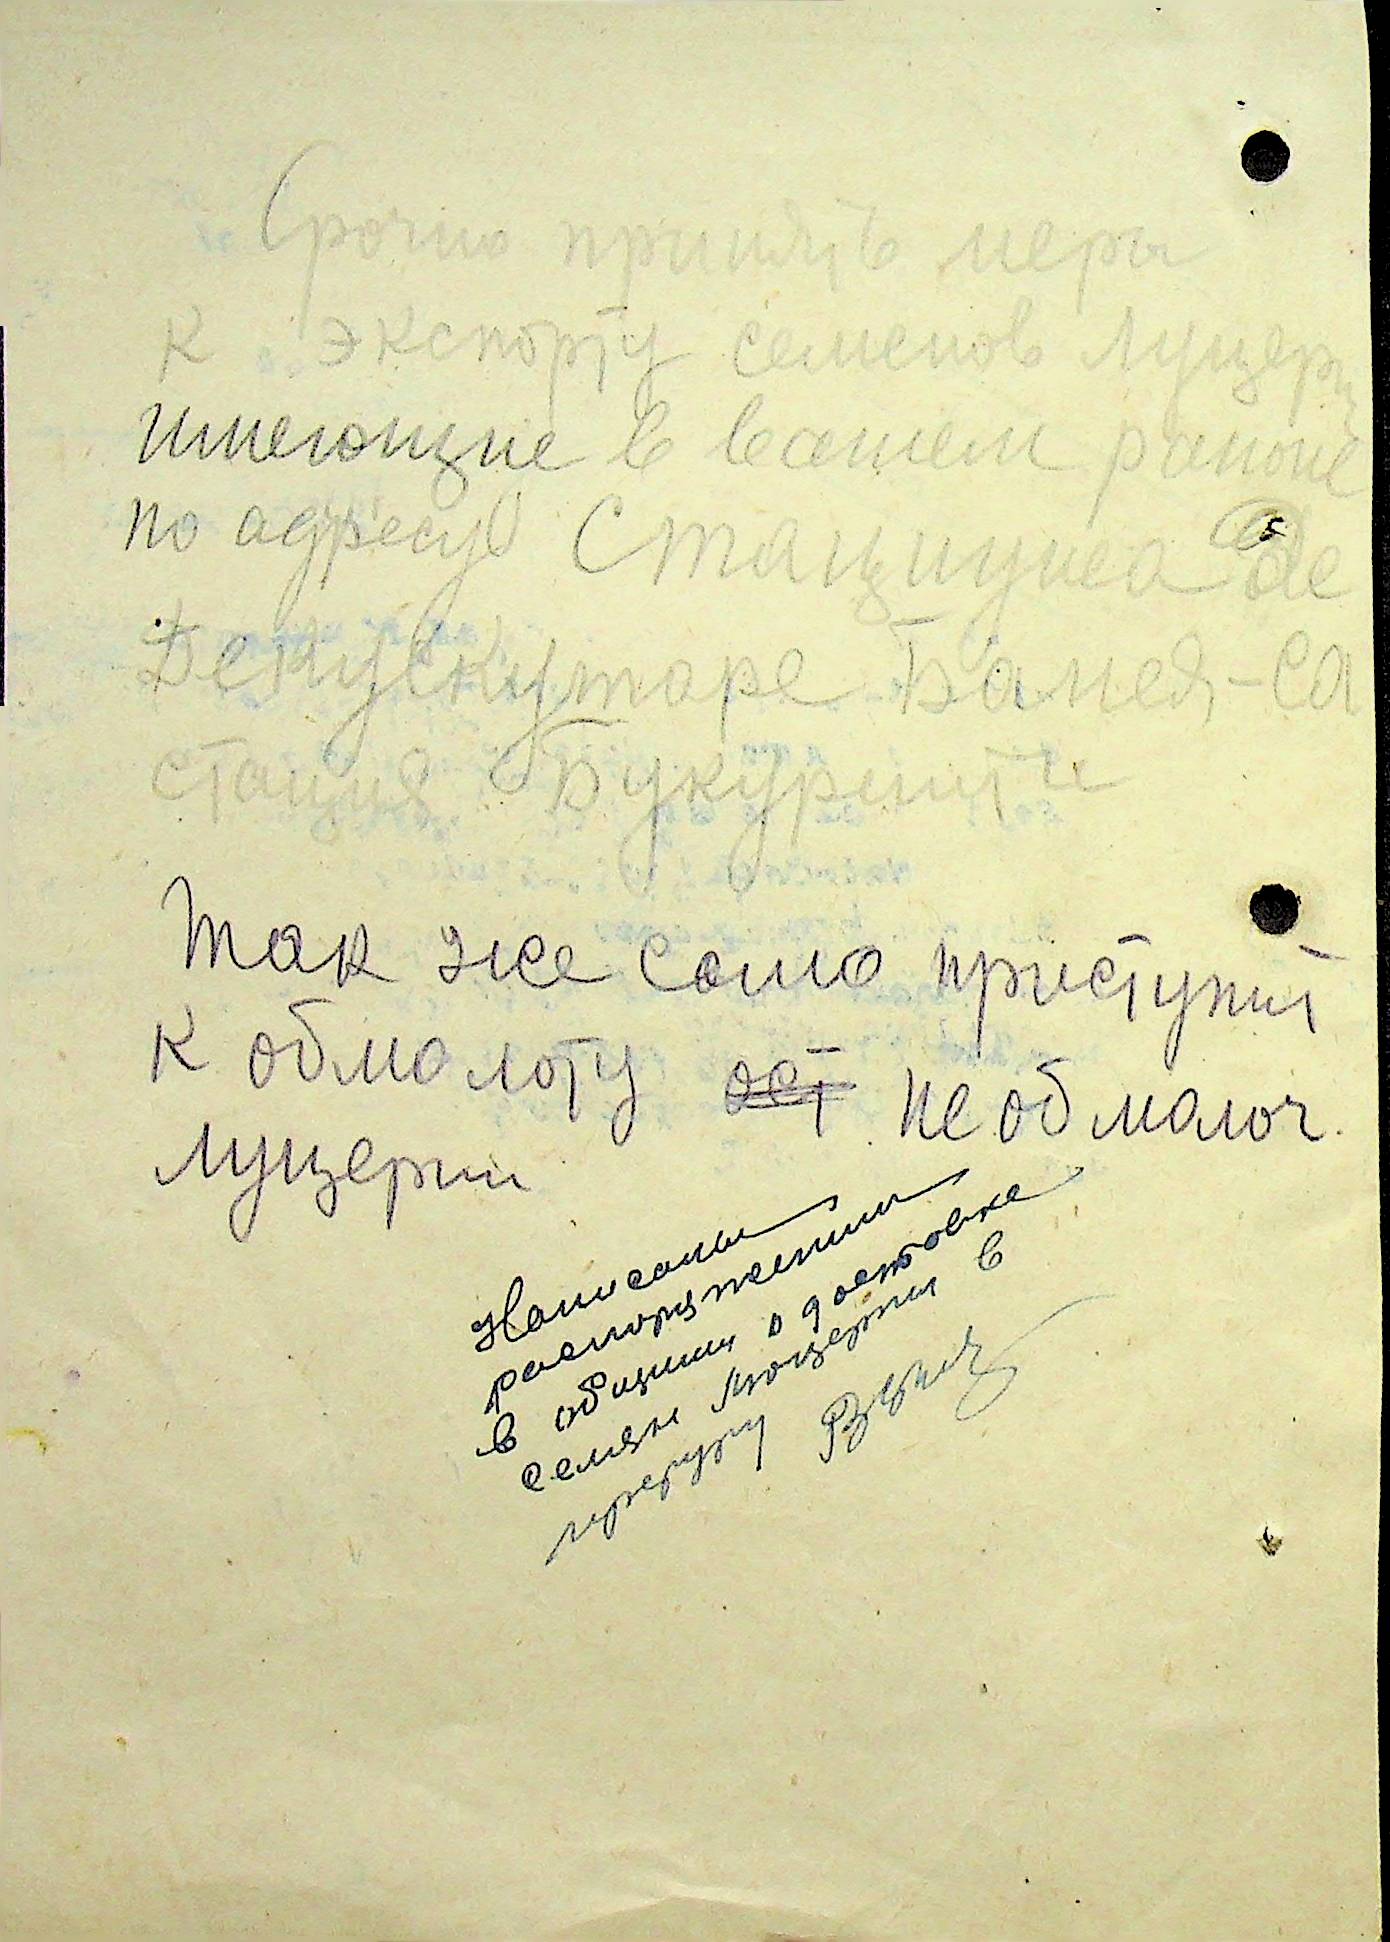 Срочно принять меры
к экспорту семенов люцерн
имеющие в вашем районе
по адресу Стациунеа де
Депускутаре Банея-са
станция Букурешти
Так же само приступит
к обмолоту ост необмолоч.
луцерни
Написаны
распоряжения
в общины о доставке
семян люцерны в